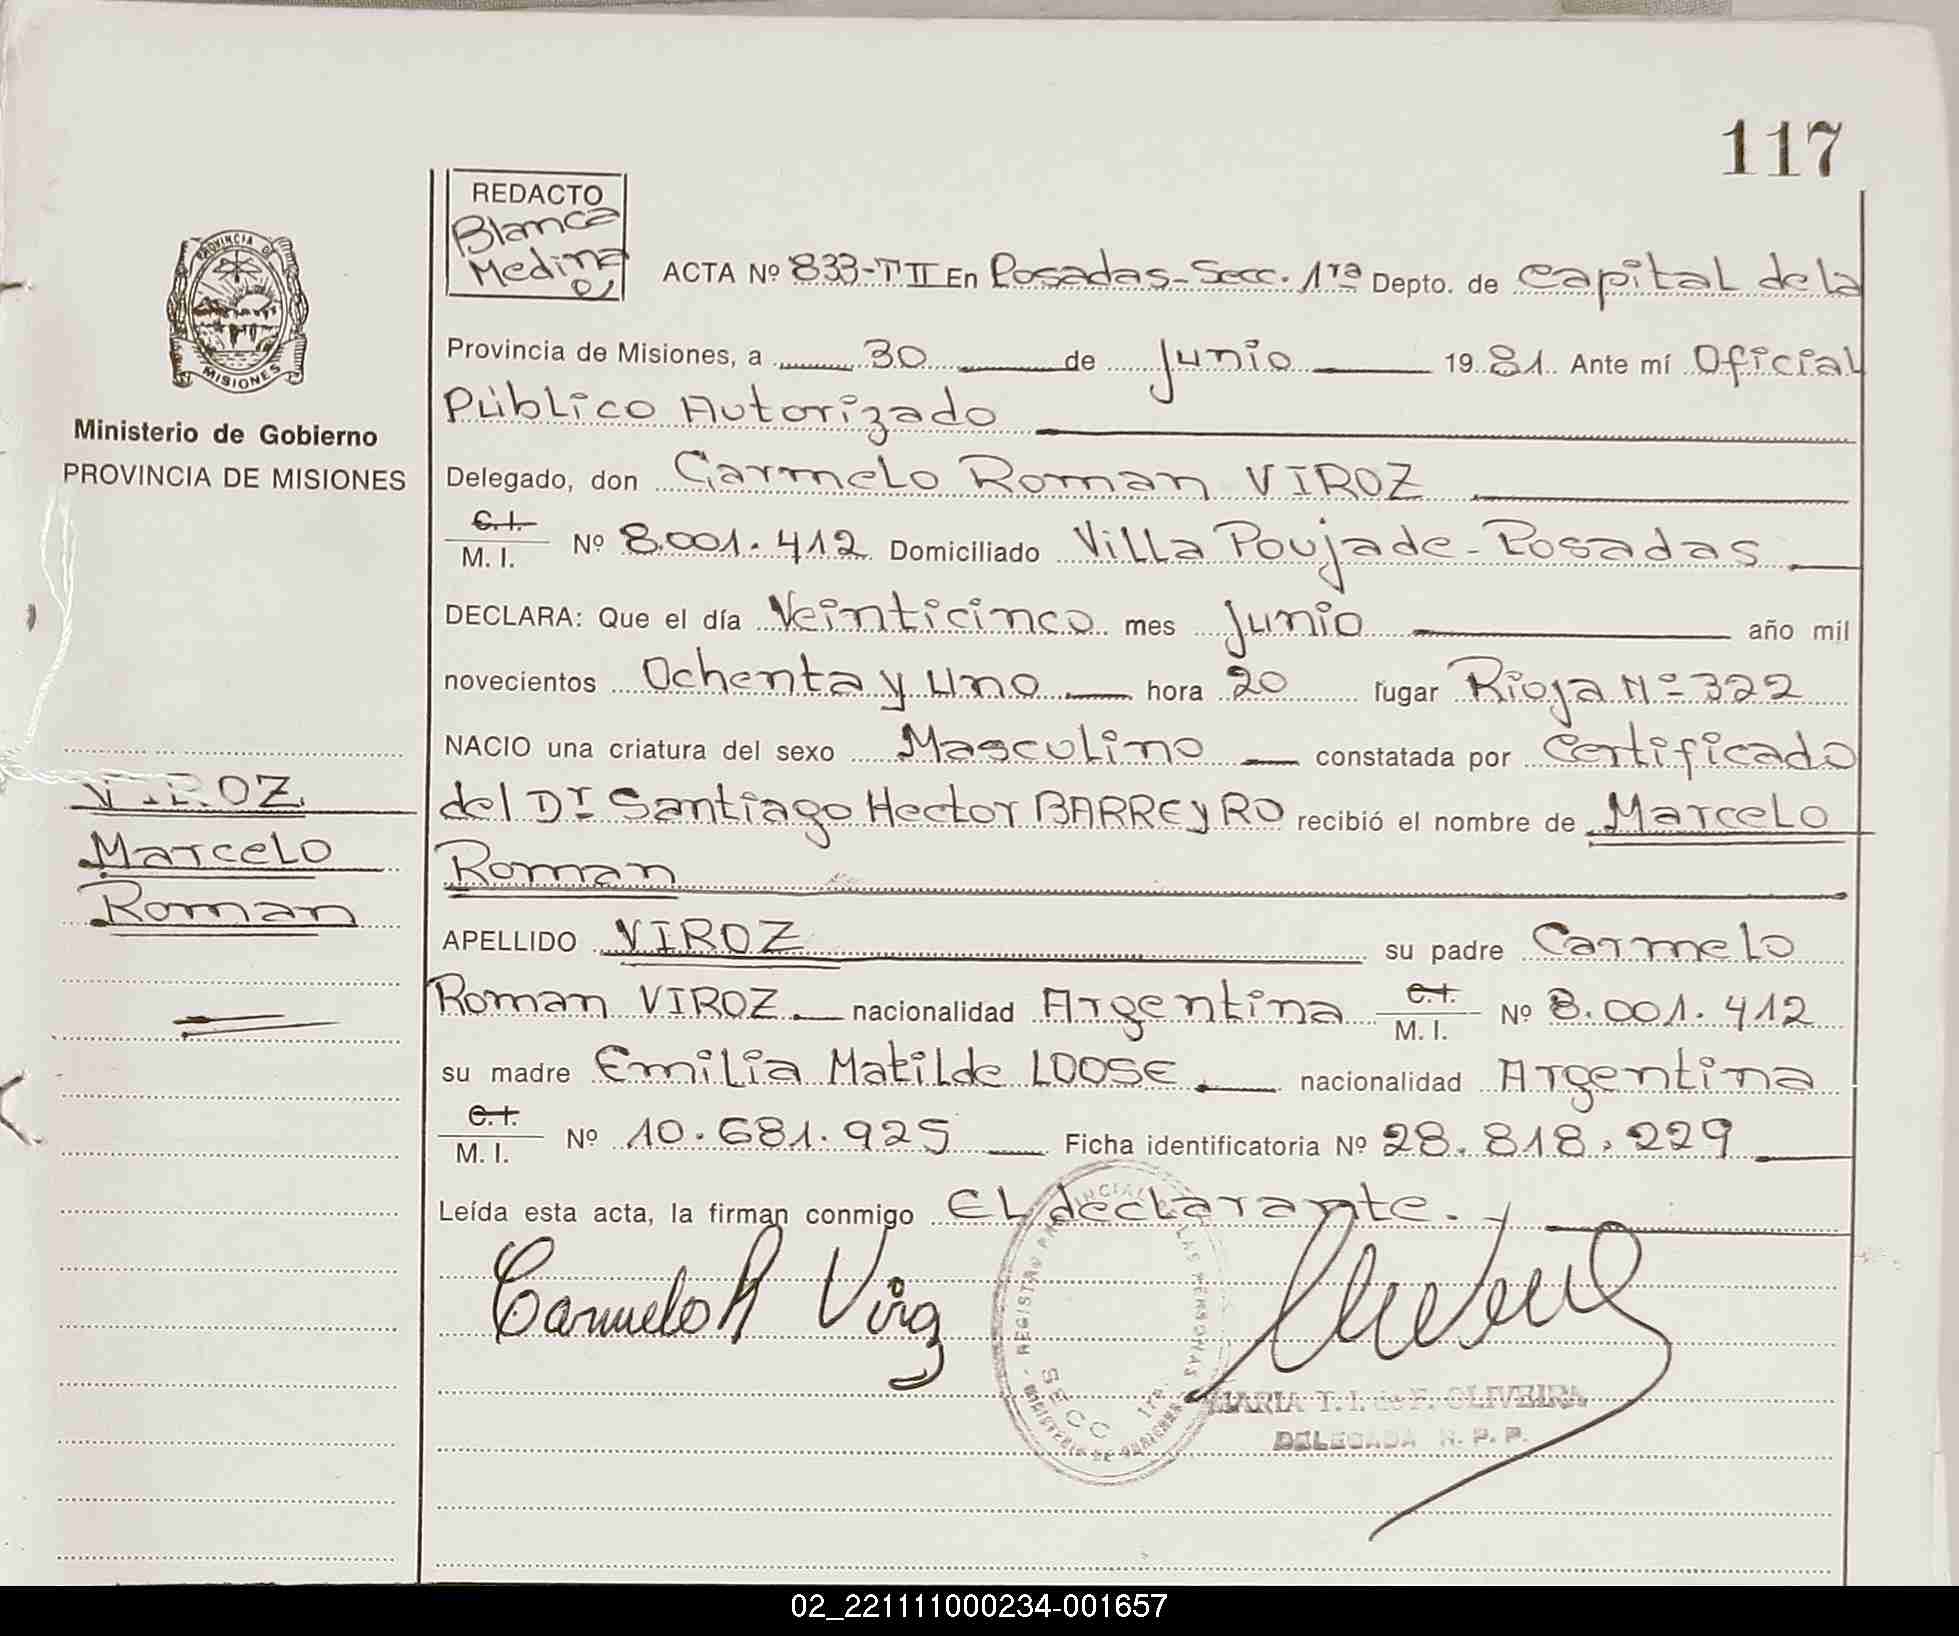 117
REDACTO
Blanca
Medina
PROVINCIA DE
MISIONES
Ministerio de Gobierno
PROVINCIA DE MISIONES
ACTA Nº 833-TII En Posadas-Secc. 1ra Depto. de Capital de la
Provincia de Misiones, a 30 de Junio 1981 Ante mí Oficial
Público Autorizado
Delegado, don Carmelo Roman VIROZ
C.I.
M. I. Nº 8.001.412 Domiciliado Villa Poujade-Posadas
DECLARA: Que el día Veinticinco mes Junio año mil
novecientos Ochenta y Uno hora 20 lugar Rioja Nº 322
NACIO una criatura del sexo Masculino constatada por Certificado
del Dr Santiago Hector BARREYRO recibió el nombre de Marcelo
Roman
APELLIDO VIROZ su padre Carmelo
Roman VIROZ nacionalidad Argentina C.I. M. I. Nº 8.001.412
su madre Emilia Matilde LOOSE nacionalidad Argentina
C.I.
M. I. Nº 10.681.925 Ficha identificatoria Nº 28.818.229
Leída esta acta, la firman conmigo El declarante.
VIROZ
Marcelo
Roman
Carmelo R Viroz
REGISTRO PROVINCIAL DE LAS PERSONAS
SECC 1ra.
MINISTERIO DE GOBIERNO
MARIA T. I. de F. OLIVEIRA
DELEGADA R. P. P.
02_221111000234-001657